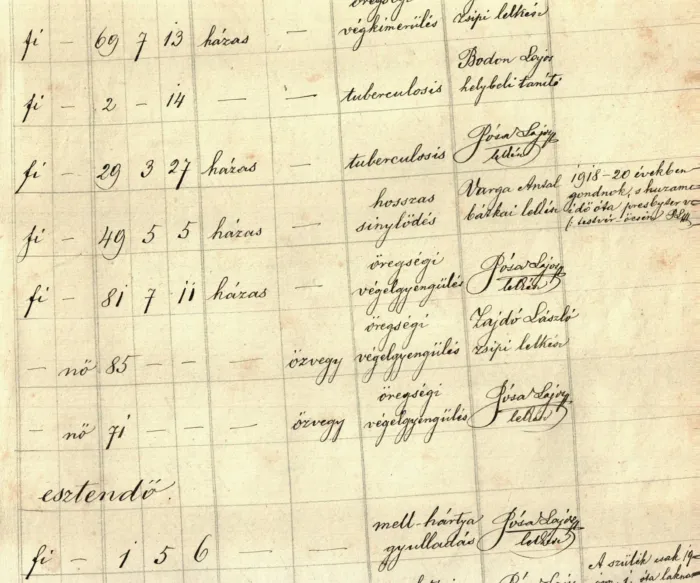 öregségi
fi – 69 7 13 házas – végkimerülés zsipi lelkész
Bodon Lajos
fi – 2 – 14 – – tuberculosis helybeli tanító
Pósa Lajos
fi – 29 3 27 házas – tuberculosis lelkész
hosszas Varga Antal 1918–20 években
fi – 49 5 5 házas – sinylődés bátkai lelkész gondnok, s
idő óta presbyter
testvér öcsém
öregségi Pósa Lajos
fi – 81 7 11 házas végelgyengülés lelkész
öregségi Zajdó László
– nő 85 – – – özvegy végelgyengülés zsipi lelkész
öregségi Pósa Lajos
– nő 71 – – – özvegy végelgyengülés lelkész
esztendő.
mell-hártya Pósa Lajos
fi – 1 5 6 – – gyulladás lelkész
A szülik csak
óta